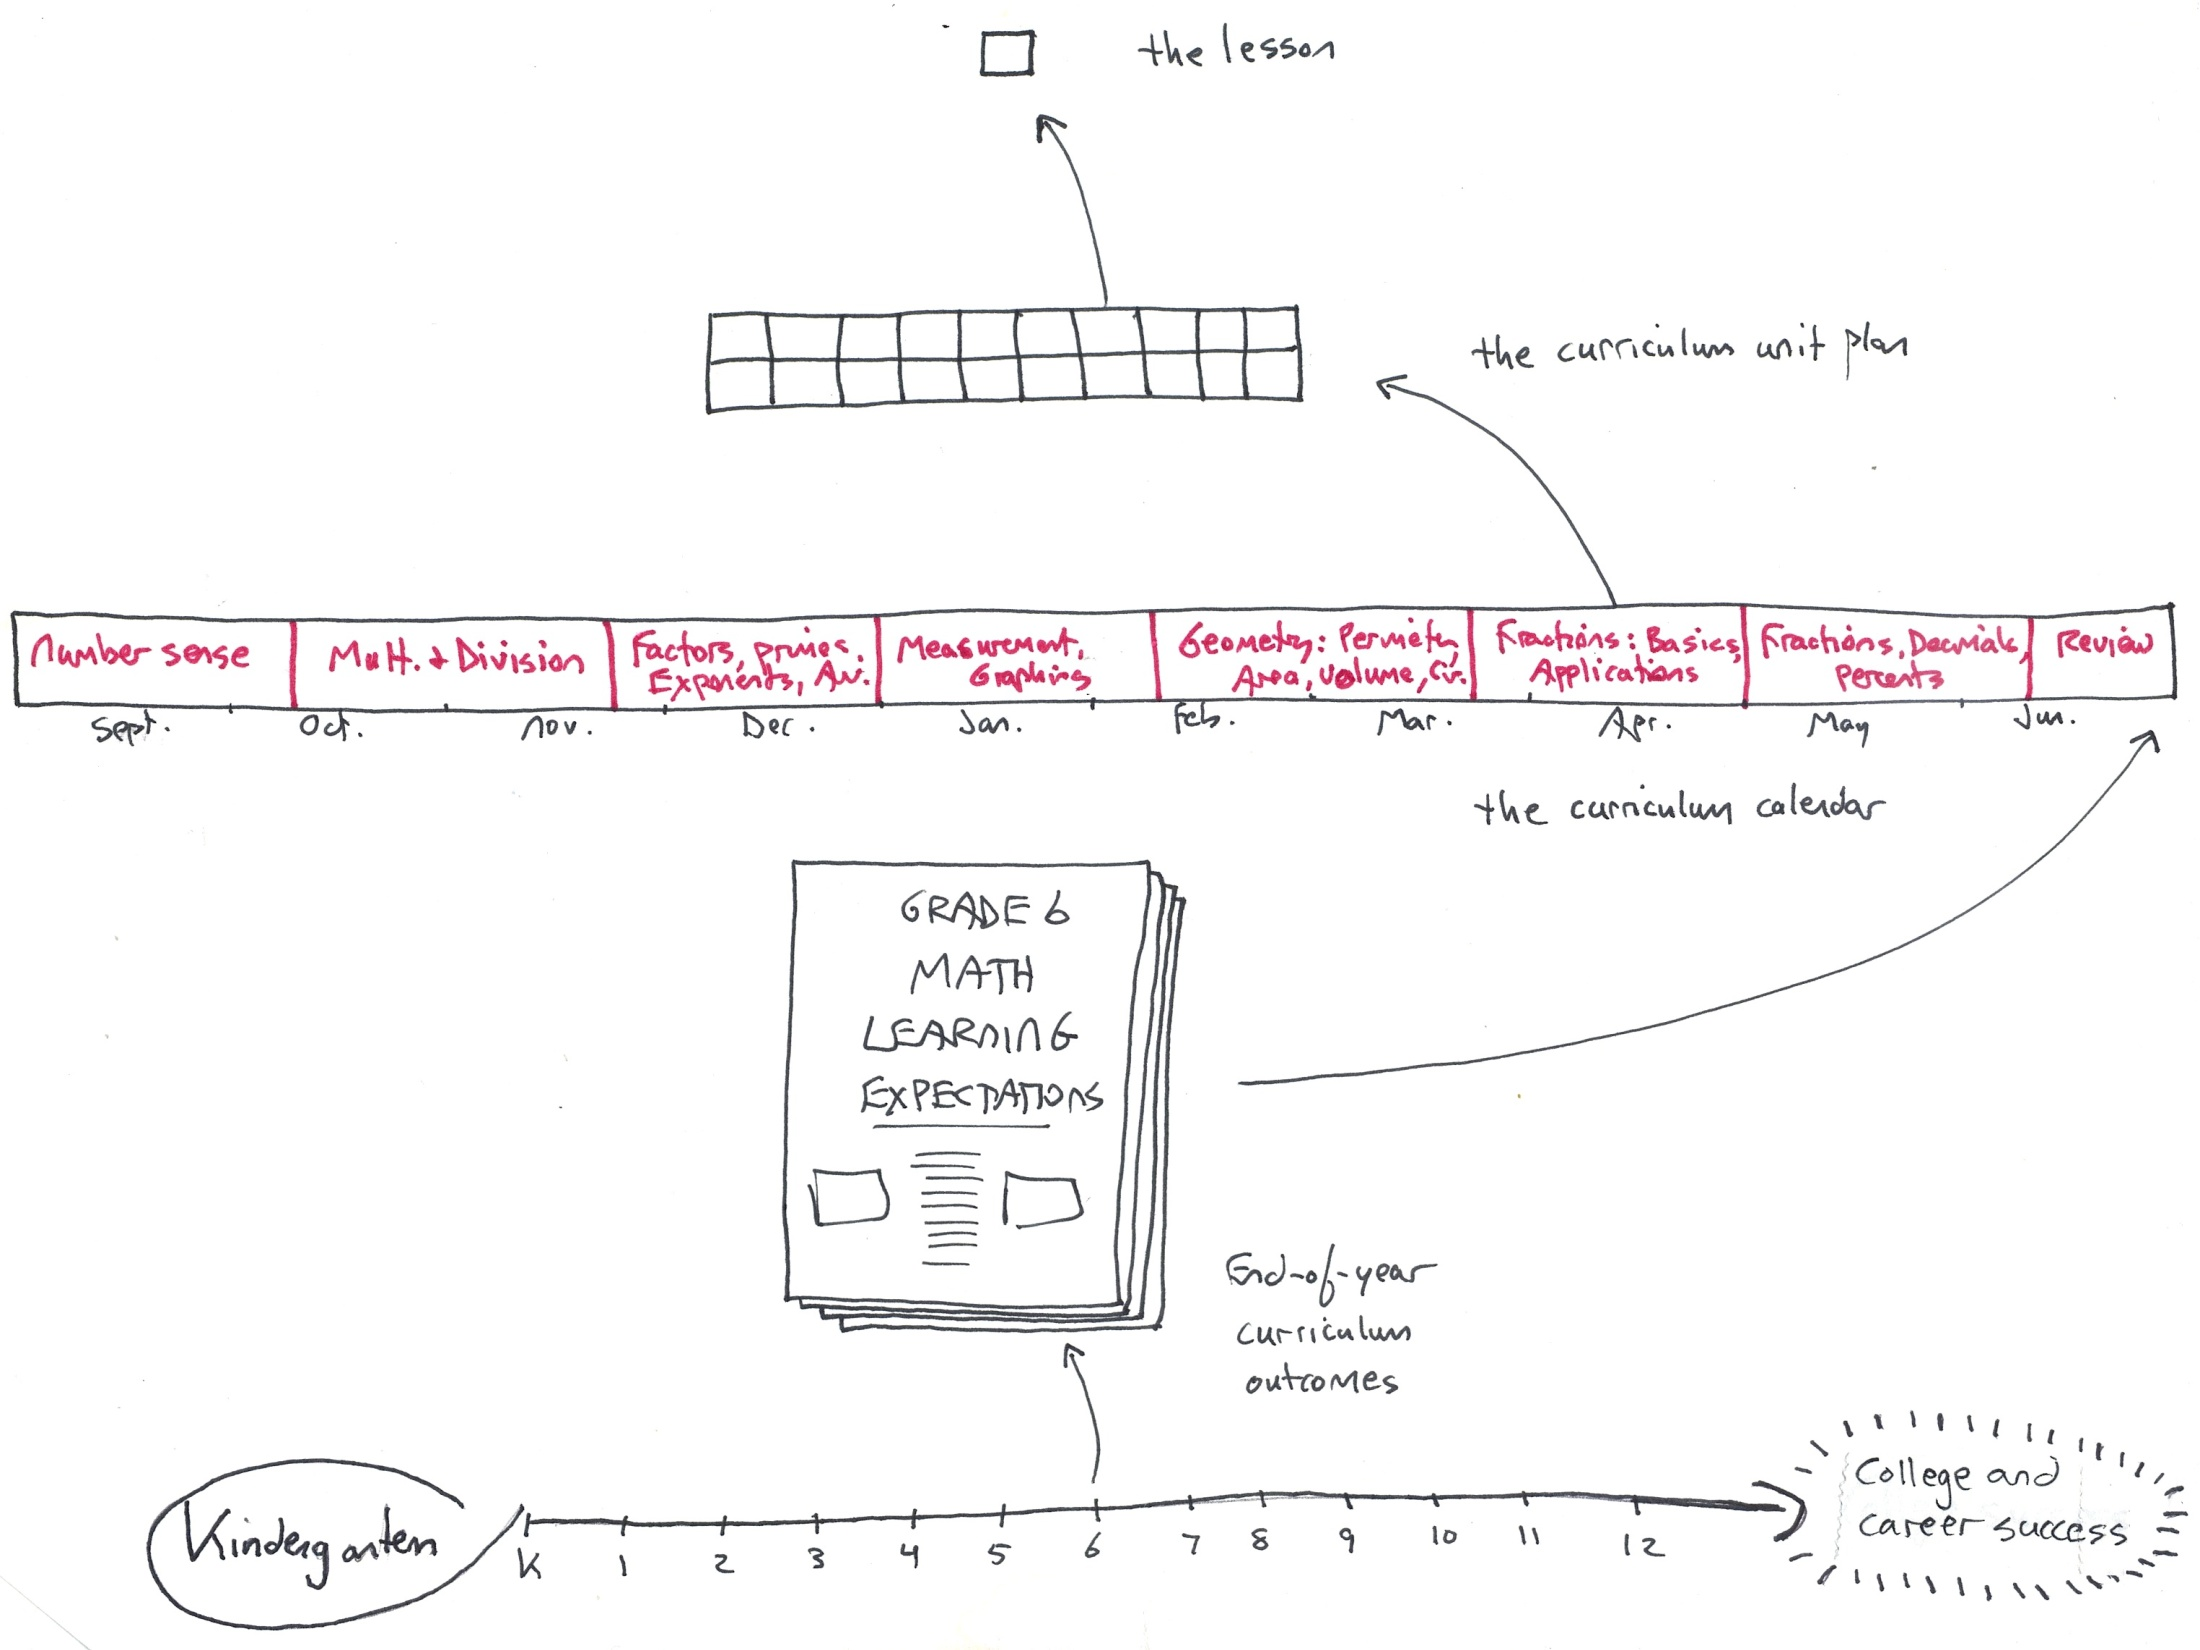 the lesson
the curriculum unit plan
Number sense
Mult. & Division
Factors, primes,
Exponents, Av.
Measurement,
Graphing
Geometry: Perimeter,
Area, Volume, Cir.
Fractions: Basics,
Applications
Fractions, Decmials,
Percents
Review
Sept.
Oct.
Nov.
Dec.
Jan.
Feb.
Mar.
Apr.
May
Jun.
the curriculum calendar
GRADE 6
MATH
LEARNING
EXPECTATIONS
End-of-year
curriculum
outcomes
Kindergarten
K 1 2 3 4 5 6 7 8 9 10 11 12
College and
career success